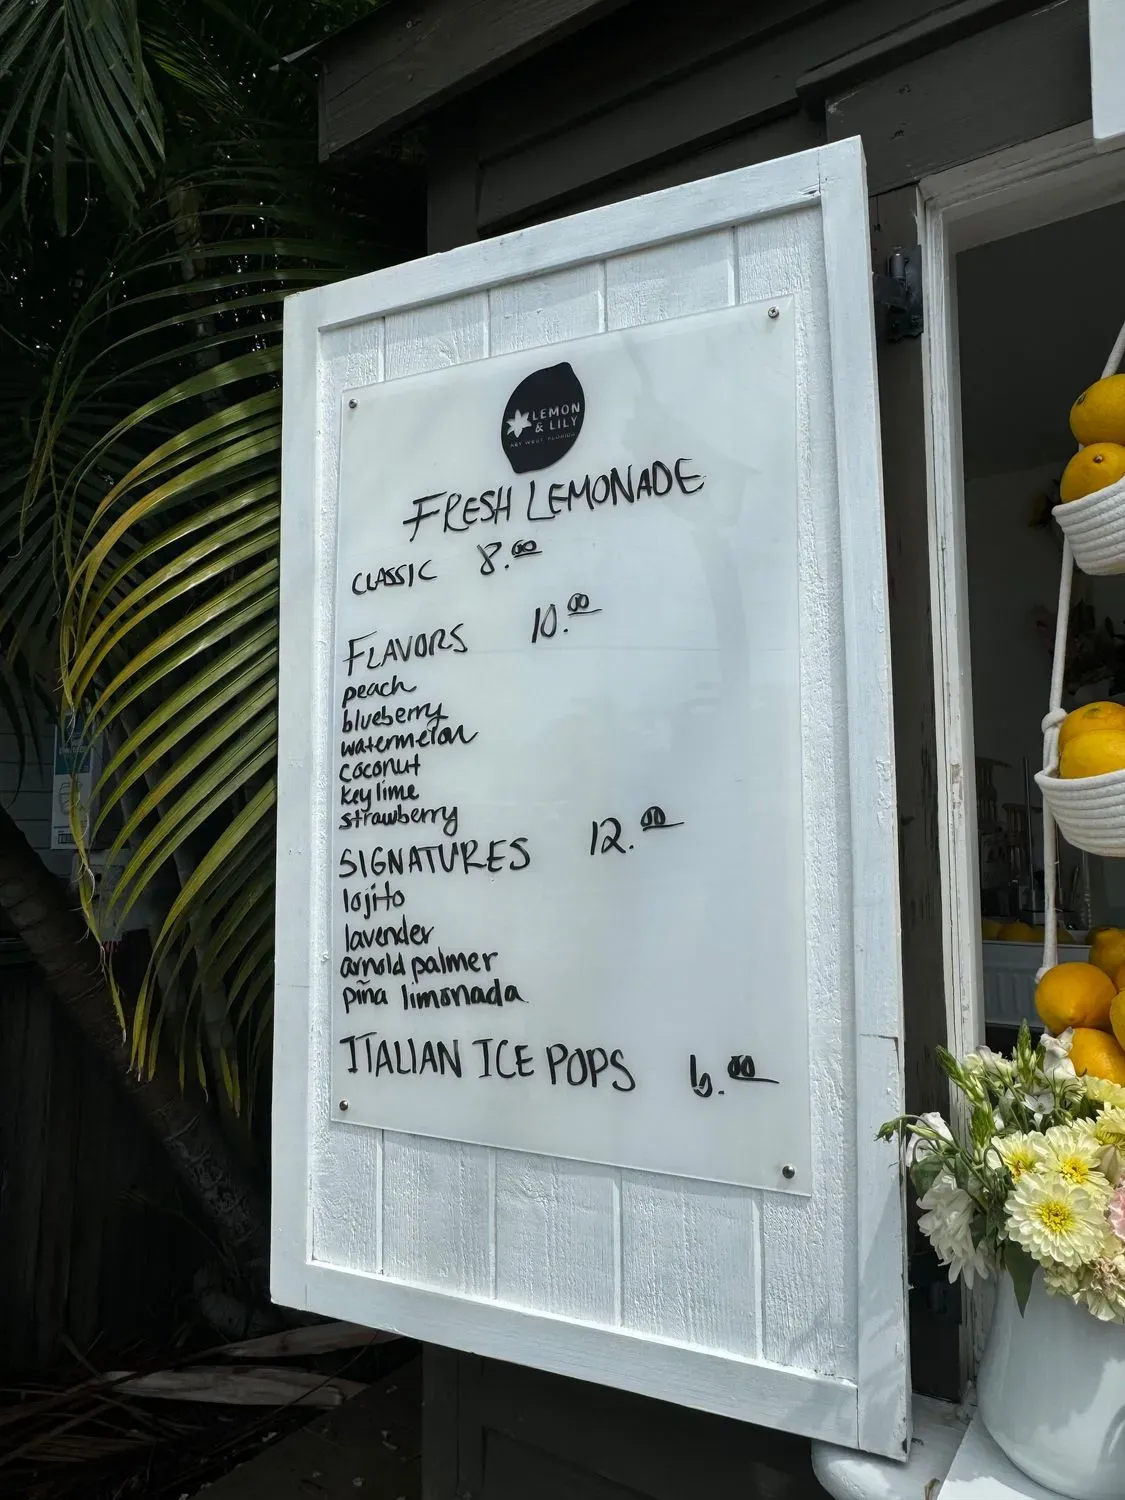 LEMON
& LILY
KEY WEST, FLORIDA
FRESH LEMONADE
CLASSIC 8.00
FLAVORS 10.00
peach
blueberry
watermelon
coconut
key lime
strawberry
SIGNATURES 12.00
lojito
lavender
arnold palmer
piña limonada
ITALIAN ICE POPS 6.00